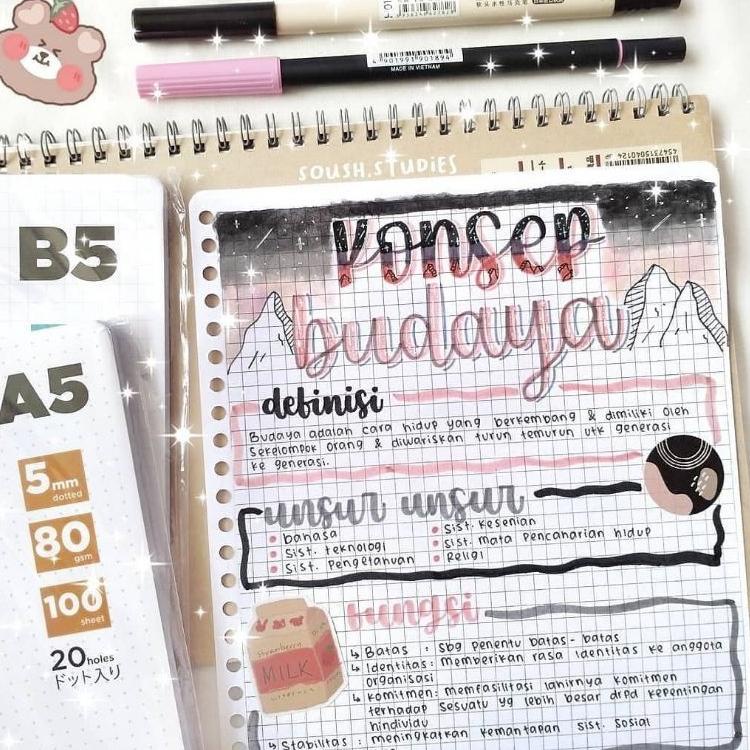 MADE IN VIETNAM
4 901991 901894
SOUSH.STUDIES
4547315040124
B5
A5
5mm
dotted
80
gsm
100
sheet
20 holes
ドット入り
Konsep
budaya
definisi
Budaya adalah cara hidup yang berkembang & dimiliki oleh
Sekelompok orang & diwariskan turun temurun utk generasi
ke generasi.
unsur unsur
• bahasa
• Sist. teknologi
• Sist. Pengetahuan
• Sist. Kesenian
• Sist. mata Pencaharian hidup
• Religi
fungsi
↳ Batas : Sbg penentu batas-batas
↳ Identitas: memberikan rasa Identitas ke anggota
organisasi
↳ Komitmen: memfasilitasi lahirnya komitmen
terhadap Sesuatu yg lebih besar drpd kepentingan
hindividu
↳ Stabilitas : meningkatkan kemantapan Sist. Sosial
strawberry
MILK